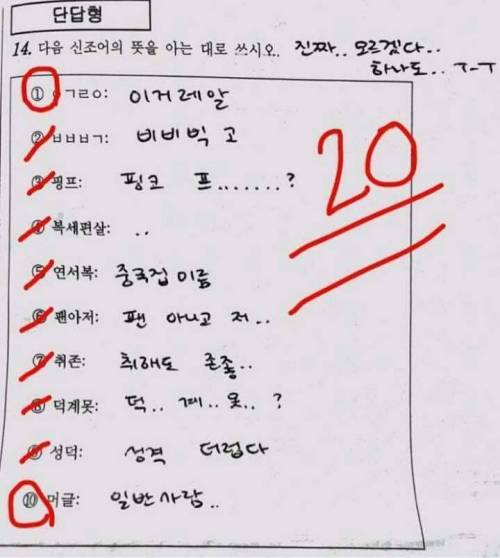 단답형
14. 다음 신조어의 뜻을 아는 대로 쓰시오. 진짜.. 모르겠다..
하나도.. ㅜㅡㅜ
① ㅇㄱㄹㅇ: 이거레알
② ㅂㅂㅂㄱ: 비비빅 고
③ 핑프: 핑크 프.......?
④ 복세편살: ..
⑤ 연서복: 중국집 이름
⑥ 팬아저: 팬 아니고 저..
⑦ 취존: 취해도 존좋..
⑧ 덕계못: 떡.. 계.. 옷.. ?
⑨ 성덕: 성격 더럽다
⑩ 머글: 일반사람..
20